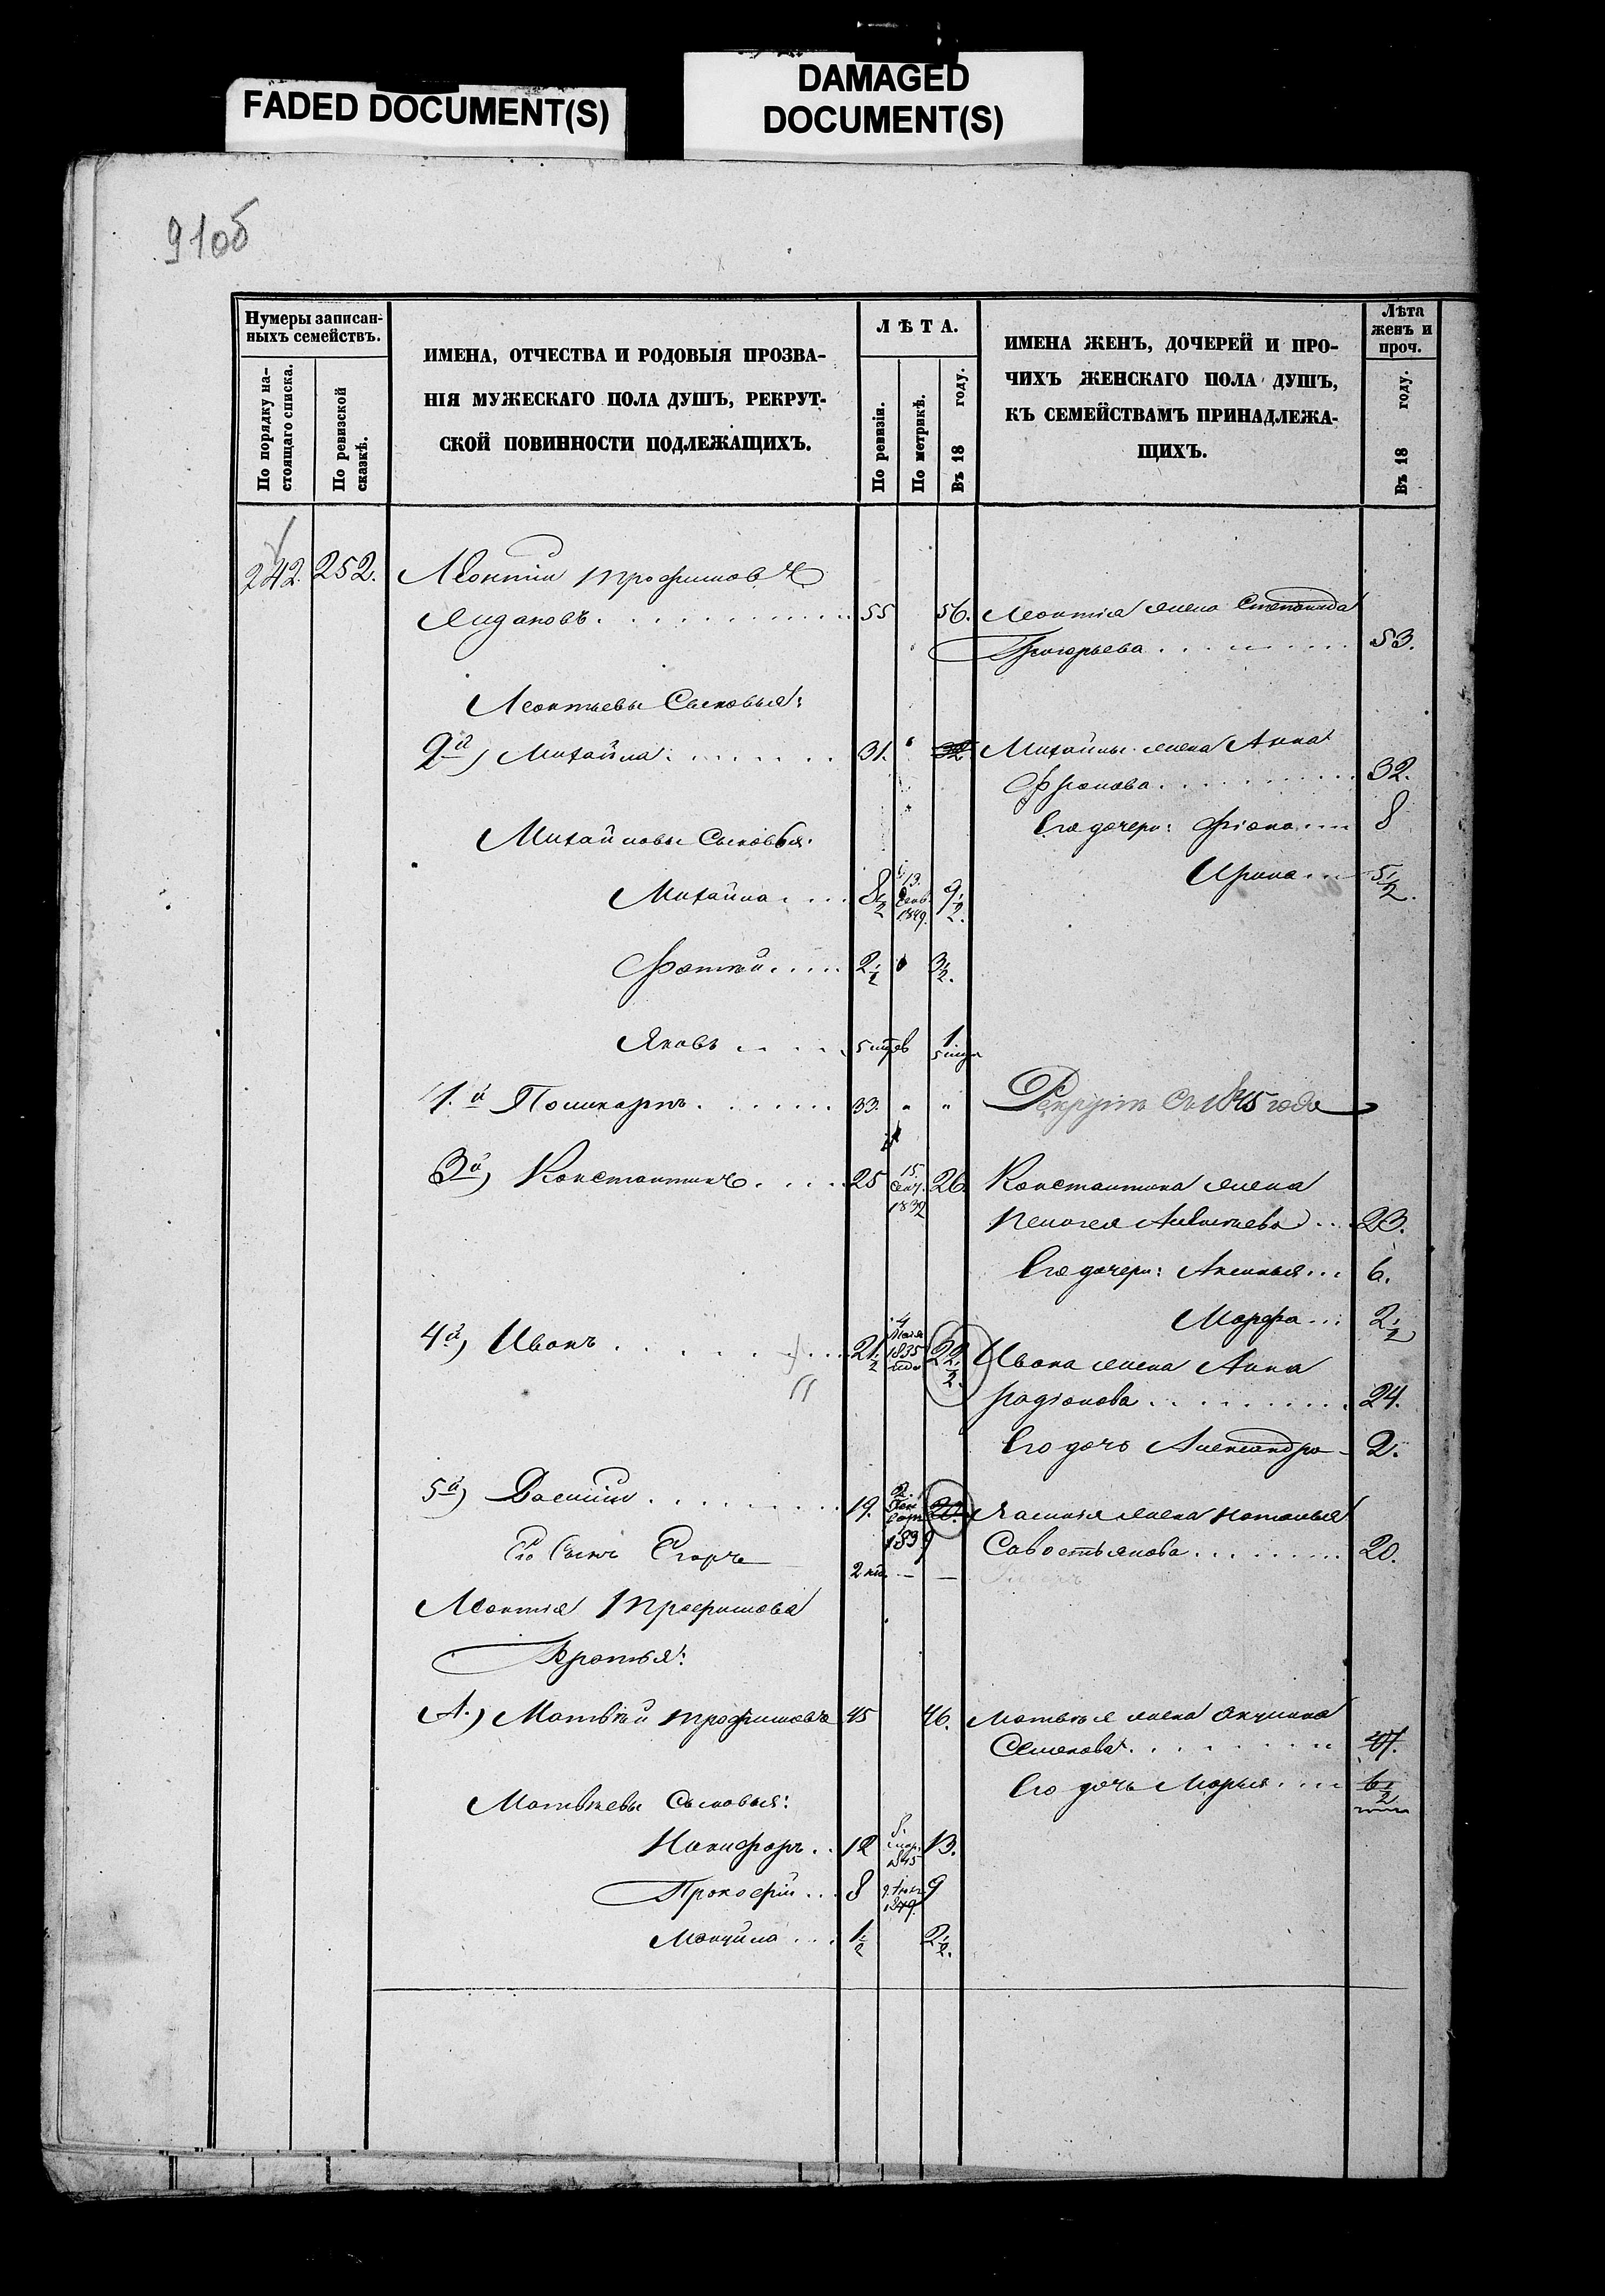 FADED DOCUMENT(S)
DAMAGED
DOCUMENT(S)
91об
Нумеры записан-
ныхъ семействъ.
По порядку на-
стоящаго списка.
По ревизской
сказкѣ.
ИМЕНА, ОТЧЕСТВА И РОДОВЫЯ ПРОЗВА-
НІЯ МУЖЕСКАГО ПОЛА ДУШЪ, РЕКРУТ-
СКОЙ ПОВИННОСТИ ПОДЛЕЖАЩИХЪ.
ЛѢТА.
По ревизіи.
По метрикѣ.
Въ 18 году.
ИМЕНА ЖЕНЪ, ДОЧЕРЕЙ И ПРО-
ЧИХЪ ЖЕНСКАГО ПОЛА ДУШЪ,
КЪ СЕМЕЙСТВАМЪ ПРИНАДЛЕЖА-
ЩИХЪ.
Лѣта
женъ и
проч.
Въ 18 году.
242. 252. Леонтій Трофимовъ
55 56. Леонтія жена Степанида
Григорьева 53.
Леонтьевы Сыновья:
2й) Михайла 31. 32 Михайлы жена Анна
32.
Его дочери: Фіона 8
Михайловы Сыновья:
Ирина 5 1/2.
Михайла 8 1/2 13. 1849. 9 1/2.
Фотій 2 1/2 3 1/2.
Яковъ 5 1 5
1.й Поликарпъ 33. " " Рекрутъ съ 1845 года
3й) Константинъ 25 15. 1832 26. Константина жена
Пелагея 23.
Его дочери: Аксинья 6.
Марфа 2 1/2
4й) Иванъ 21 1/2 4 Мая 1835 года 22 1/2. Ивана жена Анна
Родіонова 24.
Его дочь Александра 2.
5й) 19. 2. 1839 20. жена Наталья
Савостьянова 20.
Его Сынъ Егоръ 2 — —
Леонтія Трофимова
Братья:
А.) Матвѣй Трофимовъ 45 46. Матвѣя жена Акулина
Семенова 47.
Матвѣевы Сыновья:
Его дочь Марья 6 1/2
Никифоръ 12 1845 13.
Прокофій 8 1849 9
Михайла 1 1/2 2 1/2.